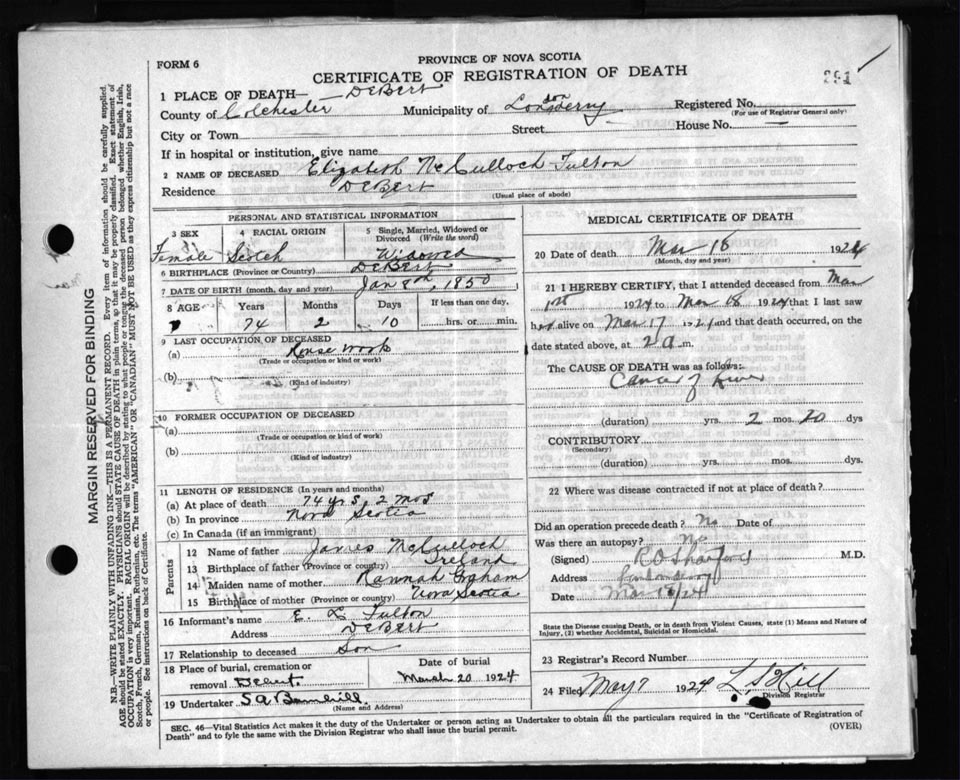 FORM 6
PROVINCE OF NOVA SCOTIA
CERTIFICATE OF REGISTRATION OF DEATH
291
1 PLACE OF DEATH— DeBert
County of Colchester Municipality of Londonderry Registered No.
(For use of Registrar General only)
City or Town Street House No. —
If in hospital or institution, give name
2 NAME OF DECEASED Elizabeth McCulloch Fulton
Residence DeBert
(Usual place of abode)
PERSONAL AND STATISTICAL INFORMATION
3 SEX 4 RACIAL ORIGIN 5 Single, Married, Widowed or Divorced (Write the word)
Female Scotch Widowed
6 BIRTHPLACE (Province or Country) DeBert
7 DATE OF BIRTH (month, day and year) Jan 8th, 1850
8 AGE Years Months Days If less than one day.
74 2 10 hrs. or min.
9 LAST OCCUPATION OF DECEASED
(a) House work
(Trade or occupation or kind or work)
(b)
(Kind of industry)
10 FORMER OCCUPATION OF DECEASED
(a)
(Trade or occupation or kind of work)
(b)
(Kind of industry)
11 LENGTH OF RESIDENCE (In years and months)
(a) At place of death 74 yrs 2 mos
(b) In province Nova Scotia
(c) In Canada (if an immigrant)
Parents
12 Name of father James McCulloch
13 Birthplace of father (Province or country) Ireland
14 Maiden name of mother Hannah Graham
15 Birthplace of mother (Province or country) Nova Scotia
16 Informant's name E. L. Fulton
Address DeBert
17 Relationship to deceased Son
18 Place of burial, cremation or removal Debert. Date of burial March 20 1924
19 Undertaker S A
(Name and Address)
MEDICAL CERTIFICATE OF DEATH
20 Date of death Mar 18 1924
(Month, day and year)
21 I HEREBY CERTIFY, that I attended deceased from Mar
1st 1924 to Mar 18 1924 that I last saw
her alive on Mar 17 1924 and that death occurred, on the
date stated above, at 2 a m.
The CAUSE OF DEATH was as follows:
Cancer of Liver
(duration) yrs. 2 mos. 20 dys
CONTRIBUTORY
(Secondary)
(duration) yrs. mos. dys.
22 Where was disease contracted if not at place of death?
Did an operation precede death? No Date of
Was there an autopsy? No
(Signed) M.D.
Address
Date Mar 24
State the Disease causing Death, or in death from Violent Causes, state (1) Means and Nature of Injury, (2) whether Accidental, Suicidal or Homicidal.
23 Registrar's Record Number
24 Filed May 7 1924 L. S. Hill
Division Registrar
SEC. 46—Vital Statistics Act makes it the duty of the Undertaker or person acting as Undertaker to obtain all the particulars required in the "Certificate of Registration of
Death" and to fyle the same with the Division Registrar who shall issue the burial permit.
(OVER)
MARGIN RESERVED FOR BINDING
N.B.—WRITE PLAINLY WITH UNFADING INK—THIS IS A PERMANENT RECORD. Every item of information should be carefully supplied.
AGE should be stated EXACTLY. PHYSICIANS should STATE CAUSE OF DEATH in plain terms, so that it may be properly classified. Exact statement of
OCCUPATION is very important. RACIAL ORIGIN will be described by stating to what people or tongue the deceased person belonged whether English, Irish,
Scotch, French, German, Russian, Ruthenian, etc. The terms "AMERICAN" OR "CANADIAN" MUST NOT BE USED as they express citizenship but not a race
or people. See instructions on back of Certificate.